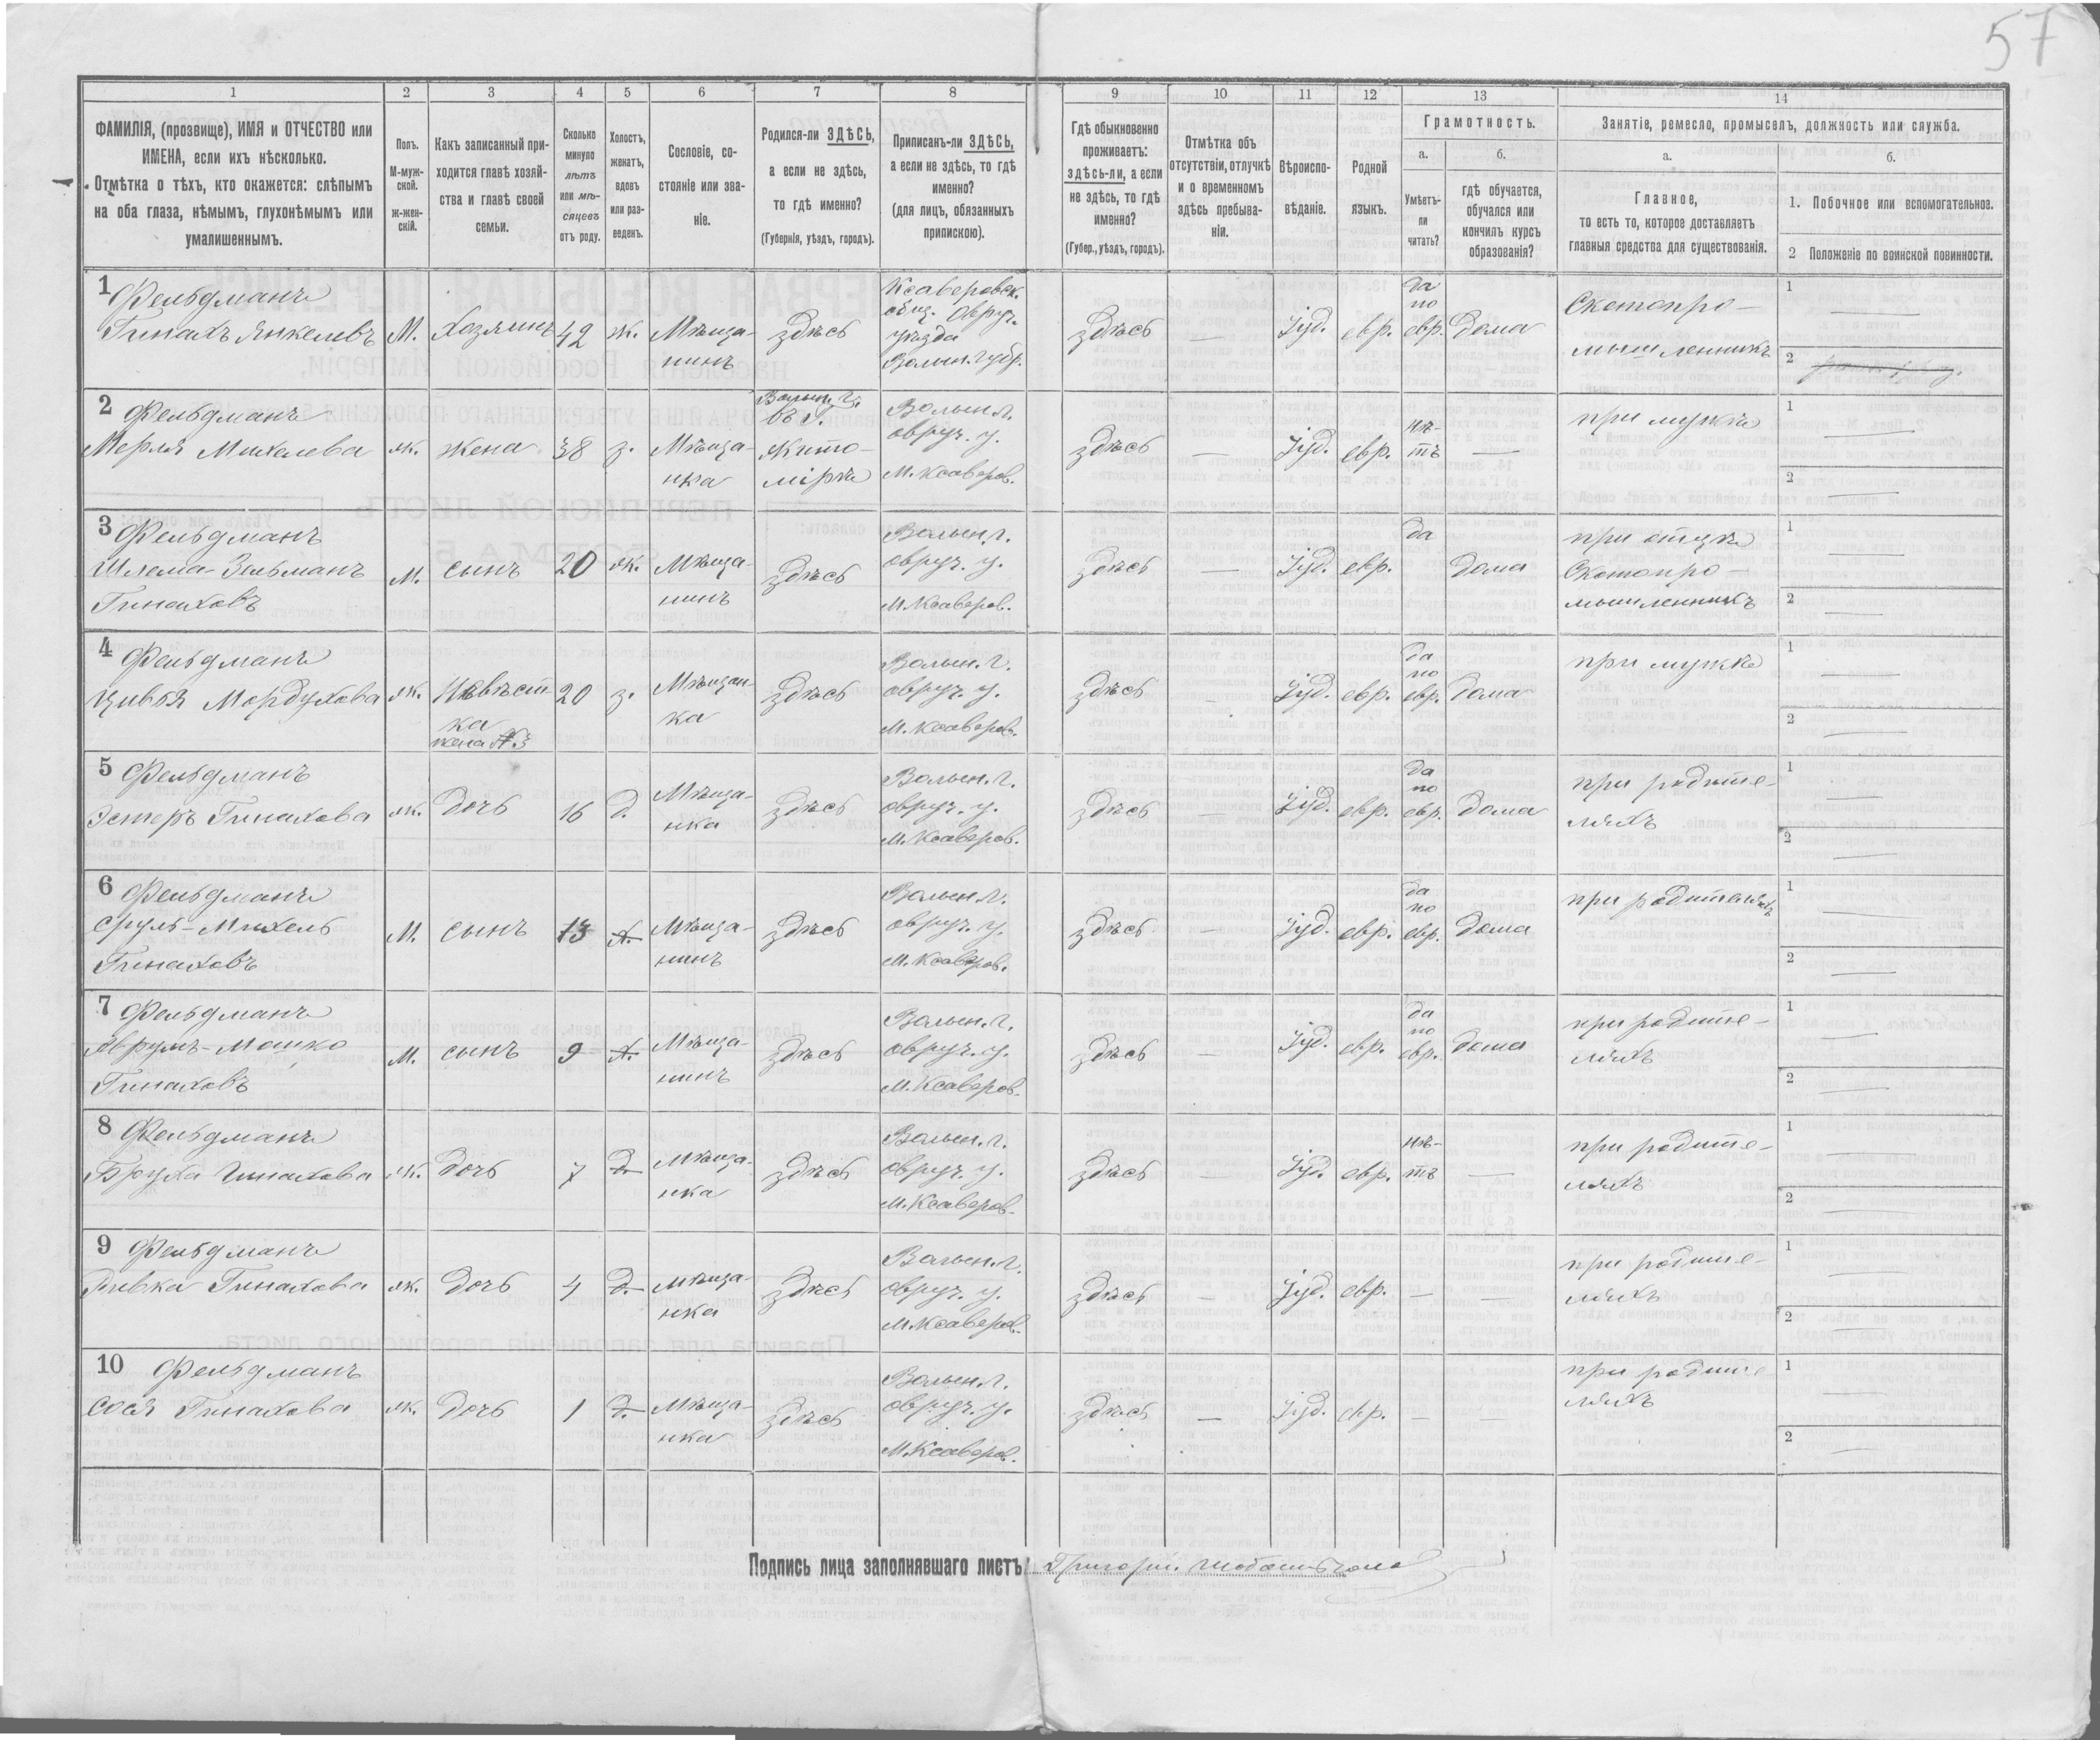 57
1 2 3 4 5 6 7 8 9 10 11 12 13 14
ФАМИЛІЯ, (прозвище), ИМЯ и ОТЧЕСТВО или
ИМЕНА, если ихъ нѣсколько.
Отмѣтка о тѣхъ, кто окажется: слѣпымъ
на оба глаза, нѣмымъ, глухонѣмымъ или
умалишеннымъ.
Полъ.
М-муж-
ской.
ж-жен-
скій.
Какъ записанный при-
ходится главѣ хозяй-
ства и главѣ своей
семьи.
Сколько
минуло
лѣтъ
или мѣ-
сяцевъ
отъ роду.
Холостъ,
женатъ,
вдовъ
или раз-
веденъ.
Сословіе, со-
стояніе или зва-
ніе.
Родился-ли ЗДѢСЬ,
а если не здѣсь,
то гдѣ именно?
(Губернія, уѣздъ, городъ).
Приписанъ-ли ЗДѢСЬ,
а если не здѣсь, то гдѣ
именно?
(для лицъ, обязанныхъ
припискою).
Гдѣ обыкновенно
проживаетъ:
здѣсь-ли, а если
не здѣсь, то гдѣ
именно?
(Губер., уѣздъ, городъ).
Отмѣтка объ
отсутствіи, отлучкѣ
и о временномъ
здѣсь пребыва-
ніи.
Вѣроиспо-
вѣданіе.
Родной
языкъ.
Грамотность.
а.
Умѣетъ-
ли
читать?
б.
гдѣ обучается,
обучался или
кончилъ курсъ
образованія?
Занятіе, ремесло, промыселъ, должность или служба.
а.
Главное,
то есть то, которое доставляетъ
главныя средства для существованія.
б.
1. Побочное или вспомогательное.
2 Положеніе по воинской повинности.
1 Фельдманъ
Гинахъ Янкелевъ
М.
Хозяинъ
42
ж.
Мѣща-
нинъ
здѣсь
Ксаверовск.
общ. Овруч.
уѣзда
Волын. губр.
здѣсь
—
Іуд.
евр.
да
по
евр.
Дома
Скотопро-
мышленникъ
1 —
2
2 Фельдманъ
Мерля Михелева
ж.
жена
38
з.
Мѣща-
нка
Волын. г.
въ г.
Жито-
мірѣ
Волын. г.
овруч. у.
М. Ксаверов.
здѣсь
—
Іуд.
евр.
нѣ-
тъ
—
при мужѣ
1 —
2 —
3 Фельдманъ
Шлема-Зельманъ
Гинаховъ
М.
сынъ
20
ж.
Мѣща-
нинъ
здѣсь
Волын. г.
овруч. у.
М. Ксаверов.
здѣсь
—
Іуд.
евр.
да
Дома
при отцѣ
Скотопро-
мышленникъ
1 —
2 —
4 Фельдманъ
Цивья Мордухова
ж.
Невѣст
ка
жена №3
20
з.
Мѣщан-
ка
здѣсь
Волын. г.
овруч. у.
М. Ксаверов.
здѣсь
—
Іуд.
евр.
да
по
евр.
Дома
при мужѣ
1 —
2 —
5 Фельдманъ
Эстеръ Гинахова
ж.
Дочь
16
Д.
Мѣща-
нка
здѣсь
Волын. г.
овруч. у.
М. Ксаверов.
здѣсь
—
Іуд.
евр.
да
по
евр.
Дома
при родите-
ляхъ
1 —
2 —
6 Фельдманъ
Сруль-Михель
Гинаховъ
М.
сынъ
13
Х.
Мѣща-
нинъ
здѣсь
Волын. г.
овруч. у.
М. Ксаверов.
здѣсь
—
Іуд.
евр.
да
по
евр.
Дома
при родителяхъ
1 —
2 —
7 Фельдманъ
Аврумъ-Мошко
Гинаховъ
М.
сынъ
9
Х.
Мѣща-
нинъ
здѣсь
Волын. г.
овруч. у.
М. Ксаверов.
здѣсь
—
Іуд.
евр.
да
по
евр.
Дома
при родите-
ляхъ
1 —
2 —
8 Фельдманъ
Бруха Гинахова
ж.
Дочь
7
Д.
Мѣща-
нка
здѣсь
Волын. г.
овруч. у.
М. Ксаверов.
здѣсь
—
Іуд.
евр.
нѣ-
тъ
—
при родите-
ляхъ
1 —
2 —
9 Фельдманъ
Ривка Гинахова
ж.
Дочь
4
Д.
Мѣща-
нка
здѣсь
Волын. г.
овруч. у.
М. Ксаверов.
здѣсь
—
Іуд.
евр.
—
—
при родите-
ляхъ
1 —
2 —
10 Фельдманъ
Сося Гинахова
ж.
Дочь
1
Д.
Мѣща-
нка
здѣсь
Волын. г.
овруч. у.
М. Ксаверов.
здѣсь
—
Іуд.
евр.
—
—
при родите
ляхъ
1 —
2 —
Подпись лица заполнявшаго листъ: Григорій